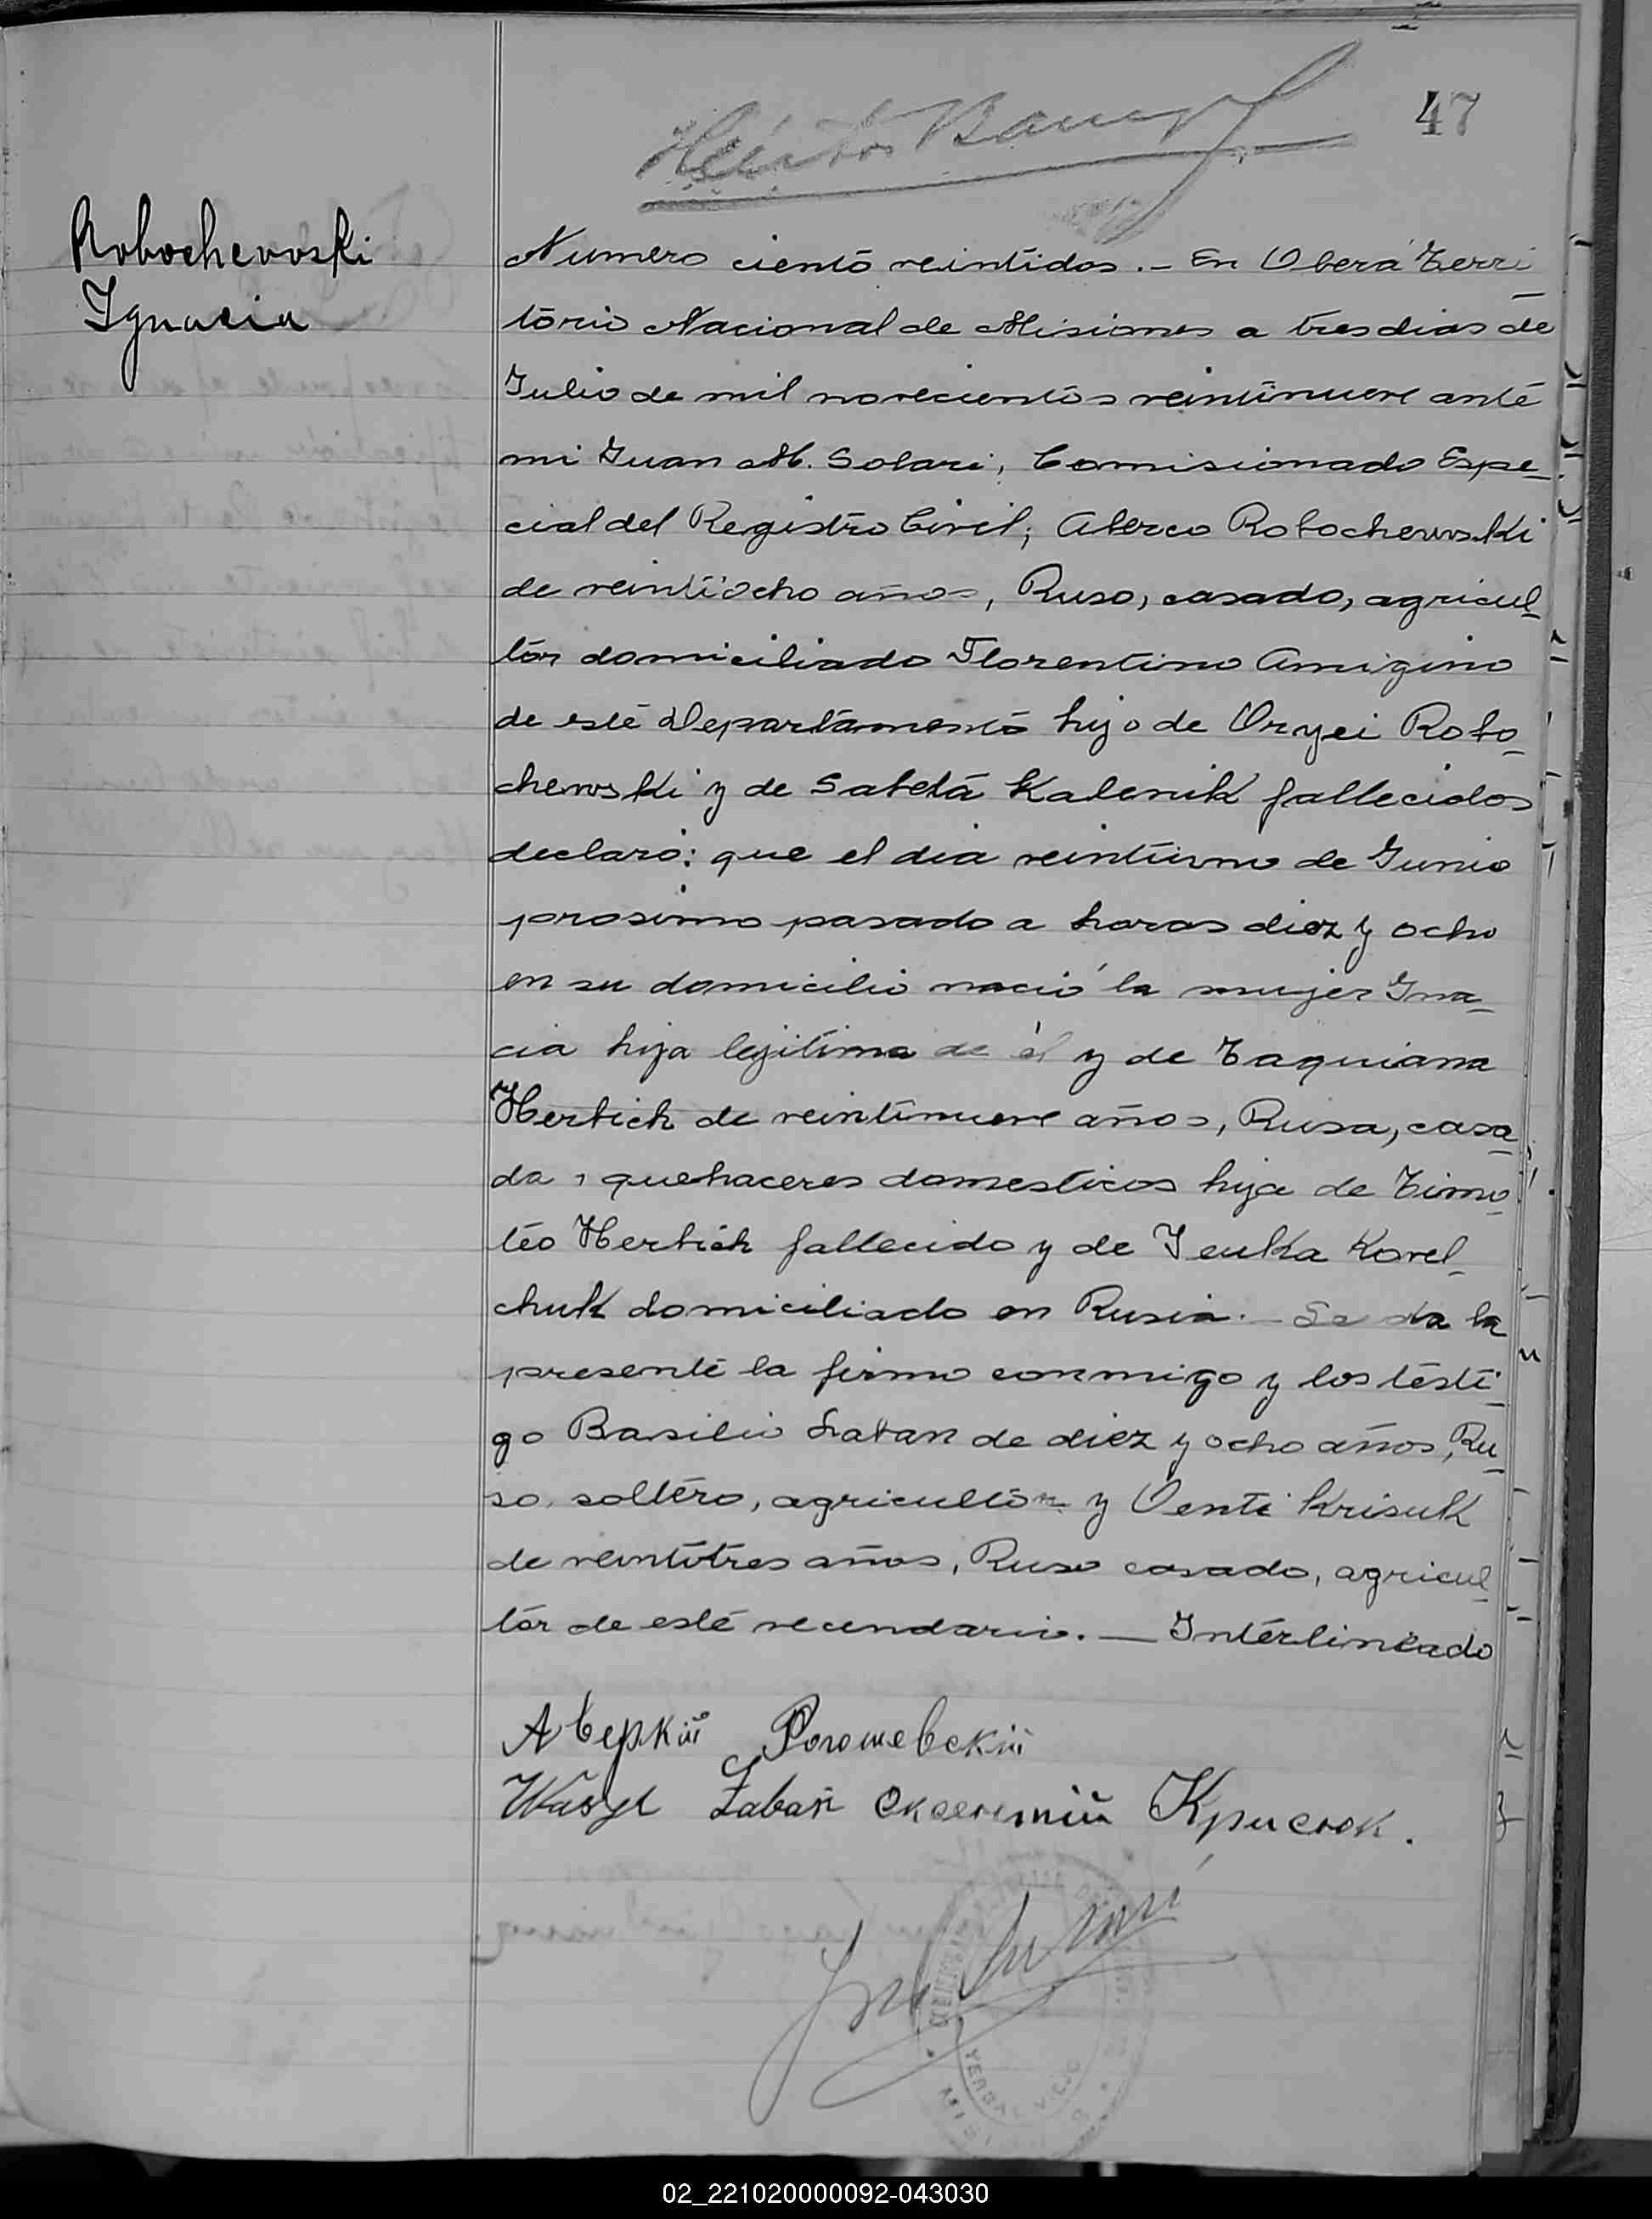 47
Robochewski
Ignacia
Numero ciento veintidos.- En Oberá Terri
torio Nacional de Misiones a tres dias de
Julio de mil novecientos veintinueve ante
mi Juan M. Solari, Comisionado Espe
cial del Registro Civil; Aberco Robochewski
de veintiocho años, Ruso, casado, agricul
tor domiciliado Florentino Amigino
de este Departamento hijo de Oryei Robo
chewski y de Sabeta Kalenik fallecidos
declaró: que el dia veintiuno de Junio
prosimo pasado a horas diez y ocho
en su domicilio nació la mujer Gna
cia hija legitima de él y de Taquiana
Herbich de veintinueve años, Rusa, casa
da, quehaceres domesticos hija de Timo
teo Herbich fallecido y de Jeuka Kovel
chuk domiciliado en Rusia.- Se da la
presente la firmo conmigo y los testi
go Basilio Saban de diez y ocho años, Ru
so, soltero, agricultor y Oenti Krisuk
de veintitres años, Ruso casado, agricul
tor de este vecendario.- Interlineado
Аверкій Рогошевскій
Wasyl Zabań Крисюк.
YERBAL VIEJO
02_221020000092-043030